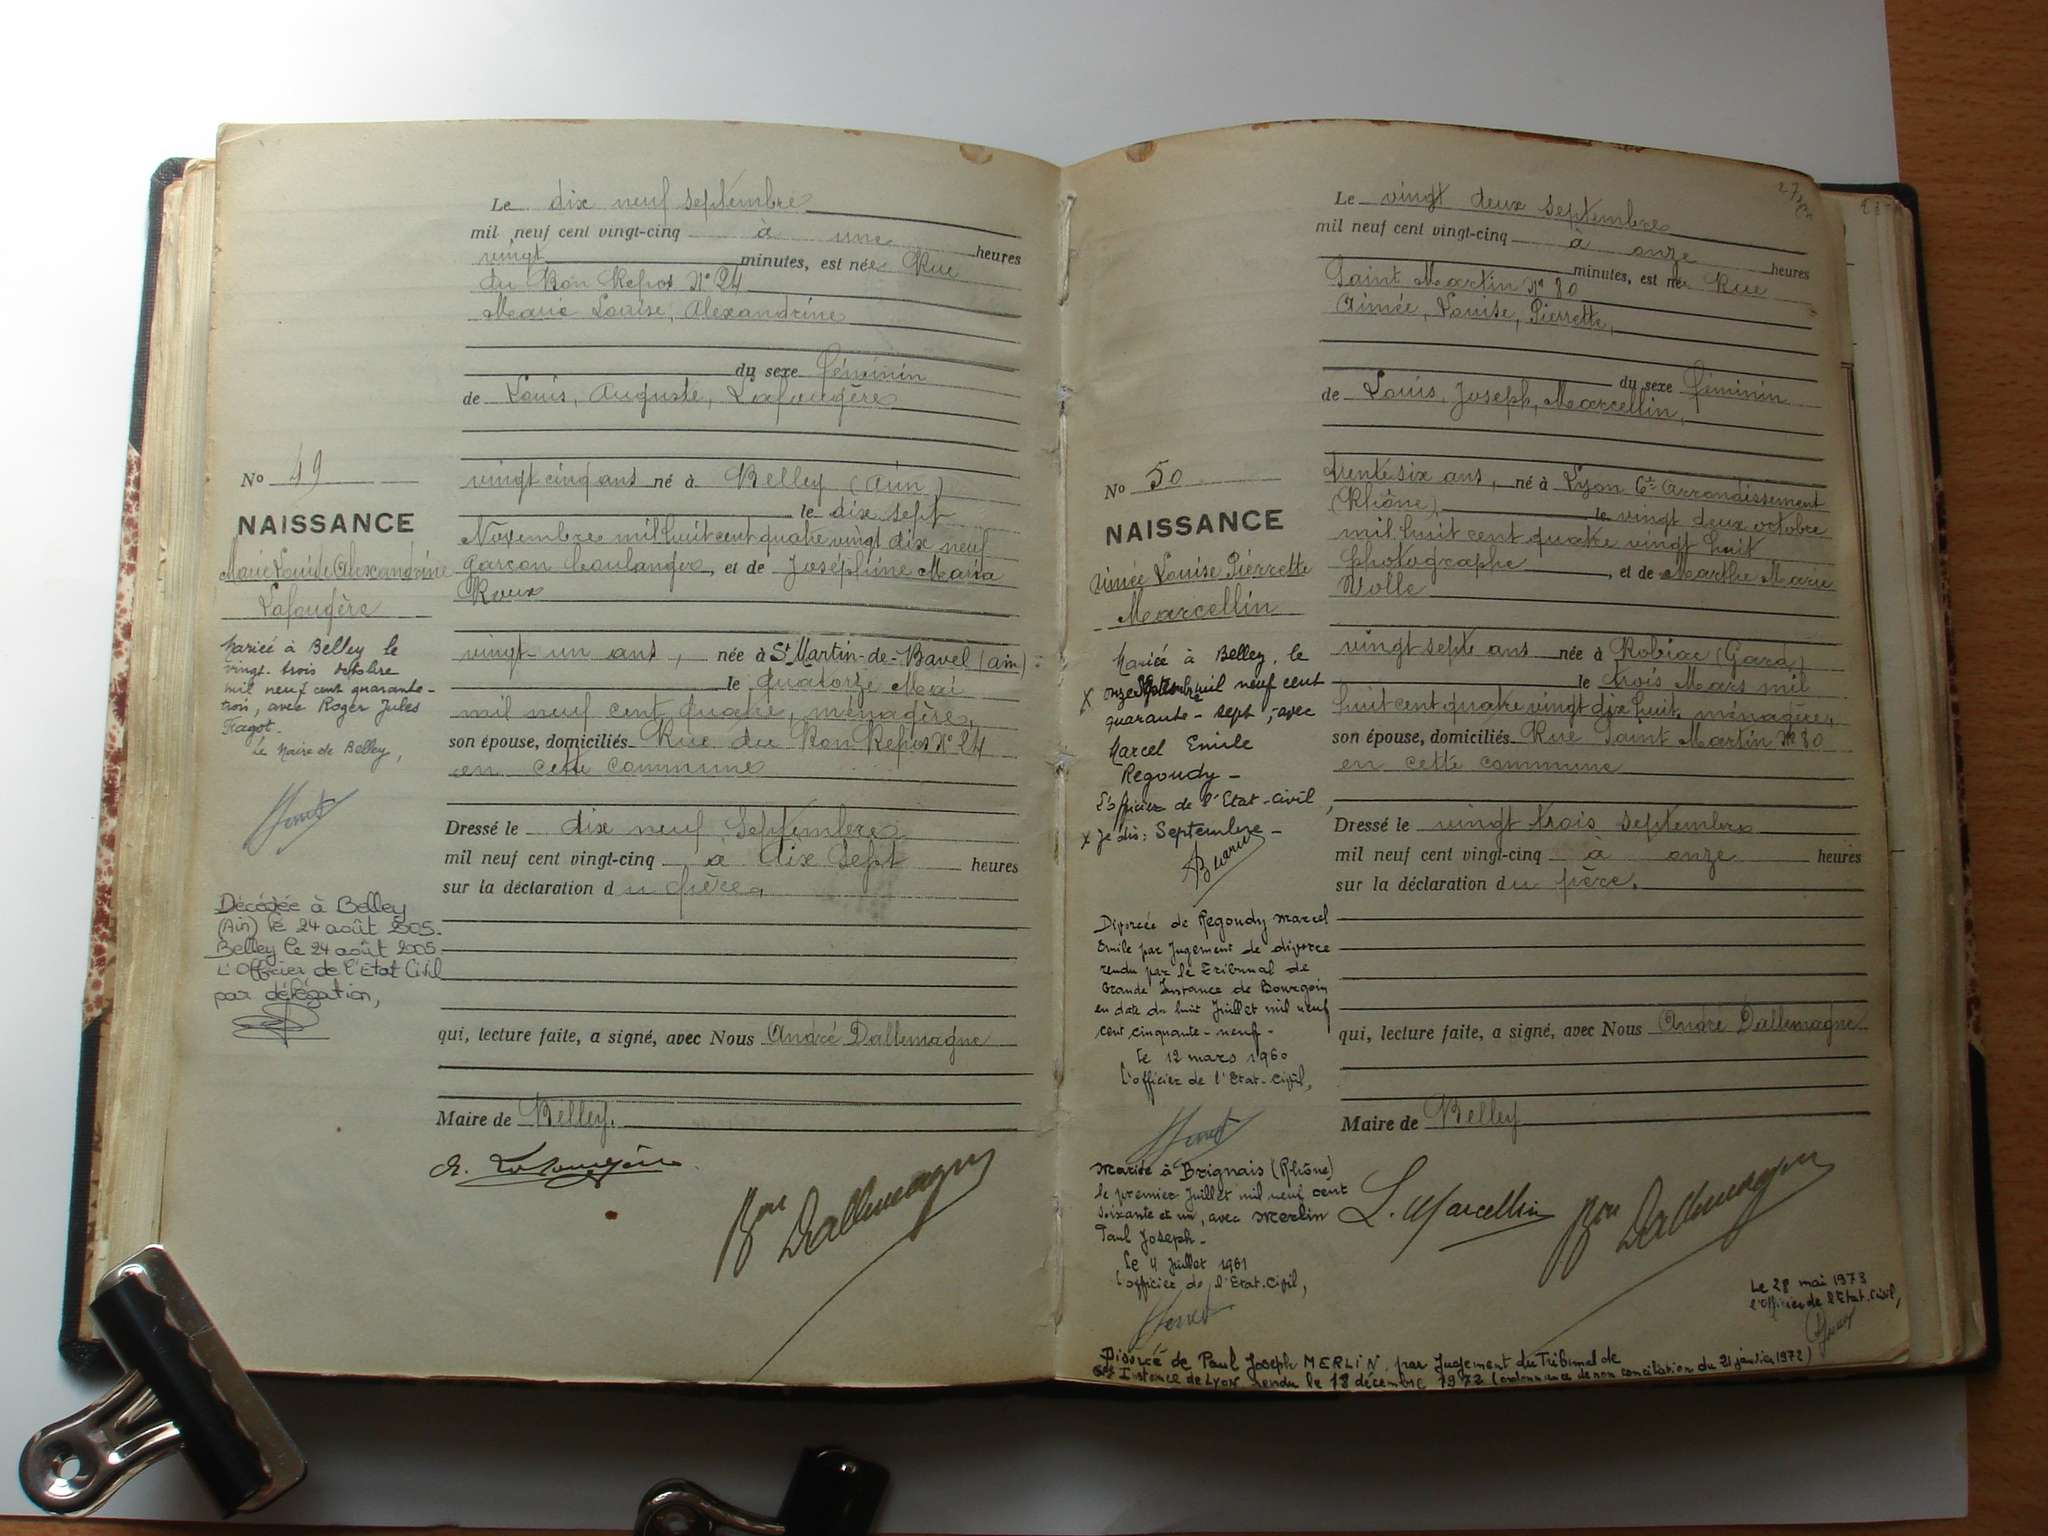 Le dix neuf septembre
mil neuf cent vingt-cinq à une heures
vingt minutes, est née Rue
du Bon Repos N° 24
Marie Louise, Alexandrine
du sexe féminin
de Louis, Auguste, Lafougère
No 49
NAISSANCE
Marie Louise Alexandrine
Lafougère
vingt cinq ans né à Belley (Ain)
le dix sept
Novembre mil huit cent quatre vingt dix neuf
garçon boulanger, et de Joséphine Maria
Roux
vingt un ans, née à St Martin-de-Bavel (ain)
le quatorze Mai
mil neuf cent quatre, ménagère,
son épouse, domiciliés Rue du Bon Repos N° 24
en cette commune
Mariée à Belley le
vingt-trois octobre
mil neuf cent quarante-
trois, avec Roger Jules
Fagot.
Le Maire de Belley,
Dressé le dix neuf Septembre
mil neuf cent vingt-cinq à dix sept heures
sur la déclaration du père,
Décédée à Belley
(Ain) le 24 août 2005.
Belley le 24 août 2005
L'Officier de l'Etat Civil
par délégation,
qui, lecture faite, a signé, avec Nous André Dallemagne
Maire de Belley.
Bon Dallemagne
Le vingt deux septembre
mil neuf cent vingt-cinq à onze heures
minutes, est née Rue
Saint Martin N° 80
Aimée, Louise, Pierrette,
du sexe féminin
de Louis, Joseph, Marcellin,
No 50
NAISSANCE
Aimée Louise Pierrette
Marcellin
trente six ans, né à Lyon 6e Arrondissement
(Rhône) le vingt deux octobre
mil huit cent quatre vingt huit
photographe, et de Marthe Marie
Wolle
vingt sept ans née à Robiac (Gard)
le trois Mars mil
huit cent quatre vingt dix huit, ménagère,
son épouse, domiciliés Rue Saint Martin N° 80
en cette commune
Mariée à Belley, le
x onze mil neuf cent
quarante-sept, avec
Marcel Emile
Regoudy -
L'officier de l'Etat-civil,
x Je dis: Septembre -
Dressé le vingt trois septembre
mil neuf cent vingt-cinq à onze heures
sur la déclaration du père.
Divorcée de Regoudy Marcel
Emile par Jugement de divorce
rendu par le Tribunal de
Grande Instance de Bourgoin
en date du huit Juillet mil neuf
cent cinquante-neuf-
le 12 mars 1960
L'officier de l'Etat-civil,
qui, lecture faite, a signé, avec Nous André Dallemagne
Maire de Belley
Mariée à Brignais (Rhône)
le premier Juillet mil neuf cent
soixante et un, avec Merlin
Paul Joseph -
le 4 Juillet 1961
L'officier de l'Etat-Civil,
L. Marcellin Bon Dallemagne
Le 28 mai 1973
l'Officier de l'Etat-Civil,
Divorcé de Paul Joseph MERLIN, par Jugement du Tribunal de
Gde Instance de Lyon rendu le 18 décembre 1972 (ordonnance de non conciliation du 21 janvier 1972)